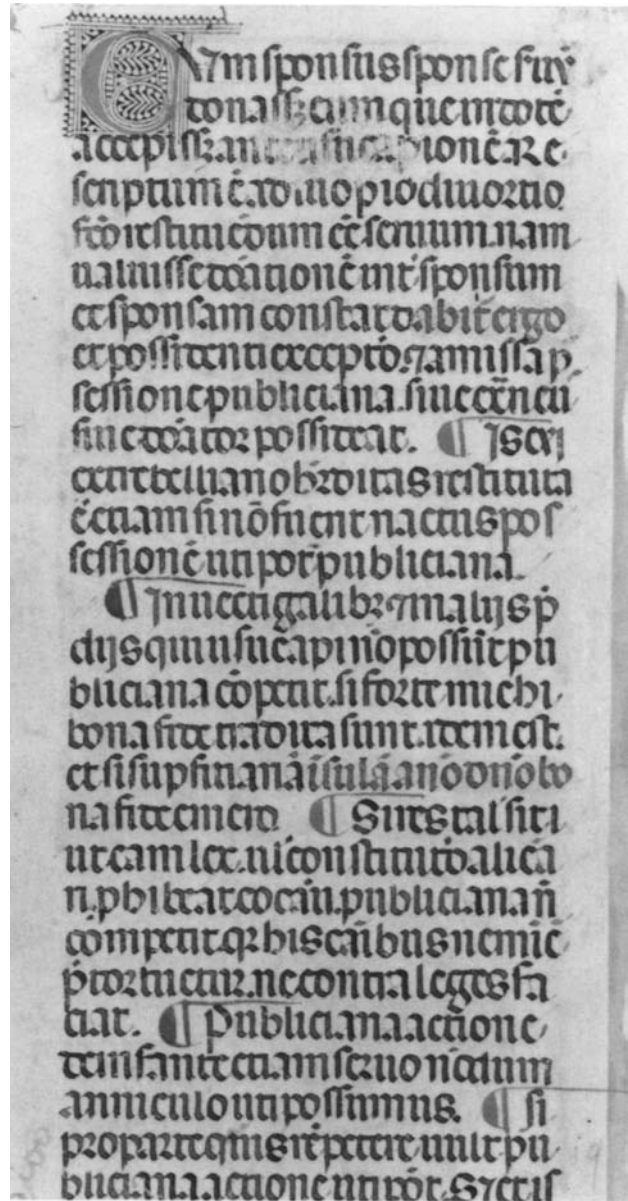 CUm sponsus sponse suū
donass; eumque in dotē
accepiss; ante usucapionē. re
scriptum ē. a diuo pio diuortio
fc̄o restituēdum eē seruum. nam
ualuisse dōationē int̄ sponsum
et sponsam constat. dabit̄ ergo
et possidenti exceptō. ⁊ amissa p
sessione publiciana. siue ext̄neū
siue dōator possideat. ¶ Is cui
ex trebelliano hr̄ditas restituta
ē. etiam si nō fuerit nactus pos
sessionē uti pot̄ publiciana.
¶ In uectigalibꝫ ⁊ in alijs p̄
dijs qui usucapi nō possūt pu
bliciana cōpetit. si forte michi
bona fide tradita sunt. idem est.
et si sup̄ficiariā īsulā. a nō dn̄o bo
na fide emero. ¶ Si res tal' sit
ut eam lex. ul' constitutō aliea
ri. phibeat eo cāu. publiciana n̄
cōmpetit. qꝛ his cāibus neminē
p̄tor tuetur. ne contra leges fa
ciat. ¶ Publiciana actione
de infante etiam seruo nōdum
anniculo uti possumus. ¶ si
pro parte quis rē petere uult pu
bliciana actione uti pōt. S; et is